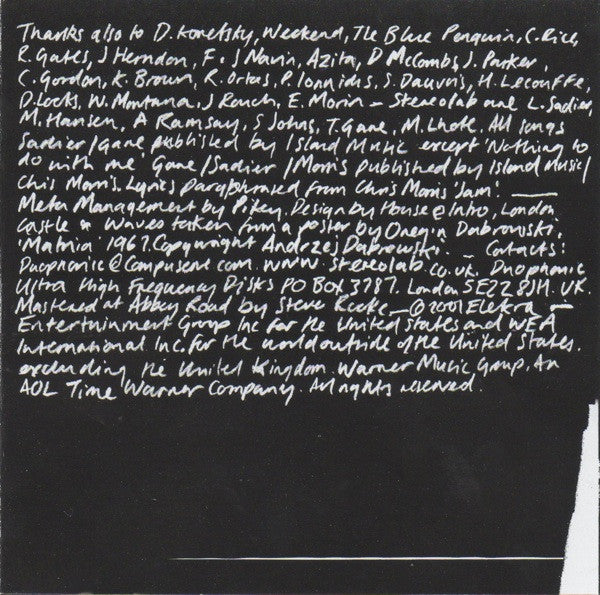 Thanks also to D. Konetsky, Weekend, The Blue Penguin, C. Rice,
R. Gates, J Herndon, F & J Navin, Azita, D McCombs, J. Parker,
C. Gordon, K. Brown, R. Ortas, P. Ionnidis, S. Dauvois, H. Lecouffe,
D. Locks, W. Montana, J Rouch, E. Morin – Stereolab are L. Sadier,
M. Hansen, A Ramsay, S Johns, T. Gane, M. Lhote. All songs
Sadier/Gane published by Island Music except 'Nothing to
do with me' Gane/Sadier/Morris published by Island Music/
Chris Morris. Lyrics paraphrased from Chris Morris 'Jam'. —
Meta Management by Pikey. Design by House @ Intro, London
Castle & Waves taken from a poster by Onegin Dabrowski,
'Matnia' 1967. Copywright Andrzej Dabrowski. – Contacts:
Duophonic@Compuserve.com. www.stereolab.co.uk. Duophonic
Ultra High Frequency Disks PO BOX 3787. London SE22 8JH. UK.
Mastered at Abbey Road by Steve Rooke — ℗© 2001 Elektra —
Entertainment Group Inc for the United States and WEA
International Inc. for the world outside of the United States.
excluding the United Kingdom. Warner Music Group, An
AOL Time Warner Company. All rights reserved.